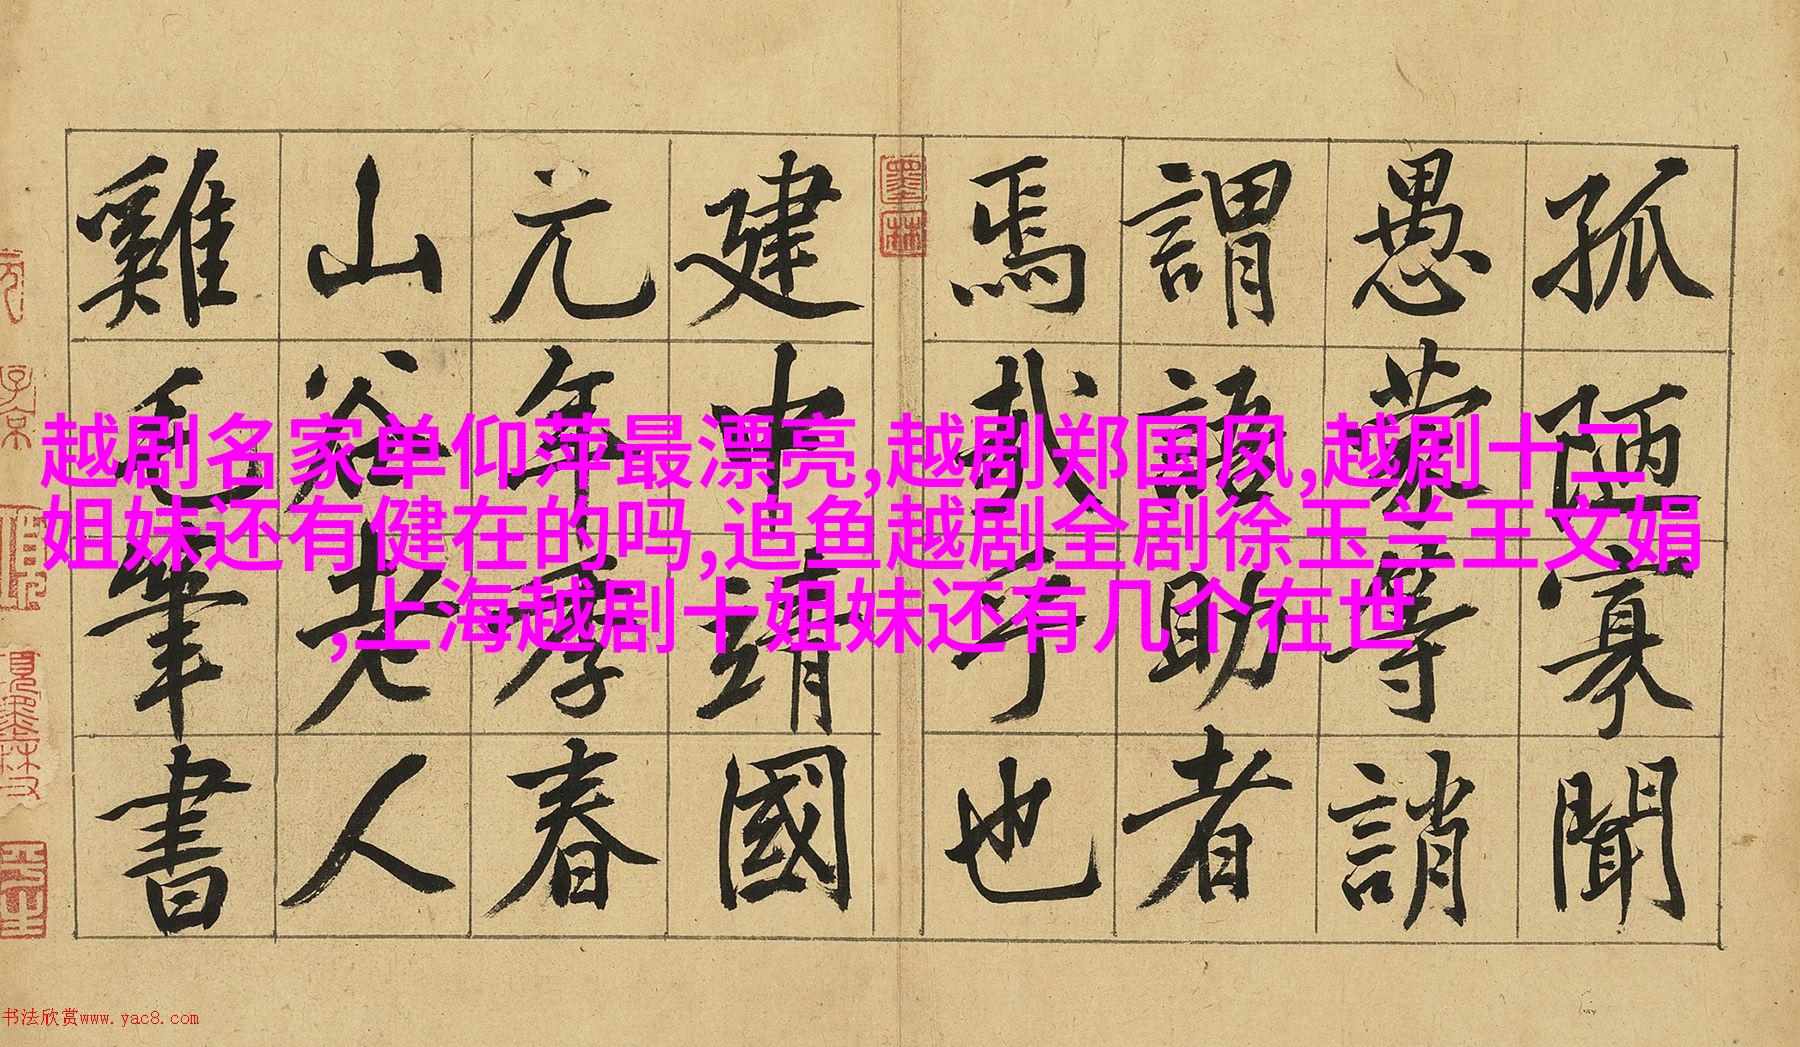 孤陋寡聞
愚蒙等誚
謂語助者
焉哉乎也
建中靖國
元年季春
山谷老人
雞毛筆書
墨林
子京
越剧名家单仰萍最漂亮,越剧郑国凤,越剧十二
姐妹还有健在的吗,追鱼越剧全剧徐玉兰王文娟
,上海越剧十姐妹还有几个在世
书法欣赏www.yac8.com